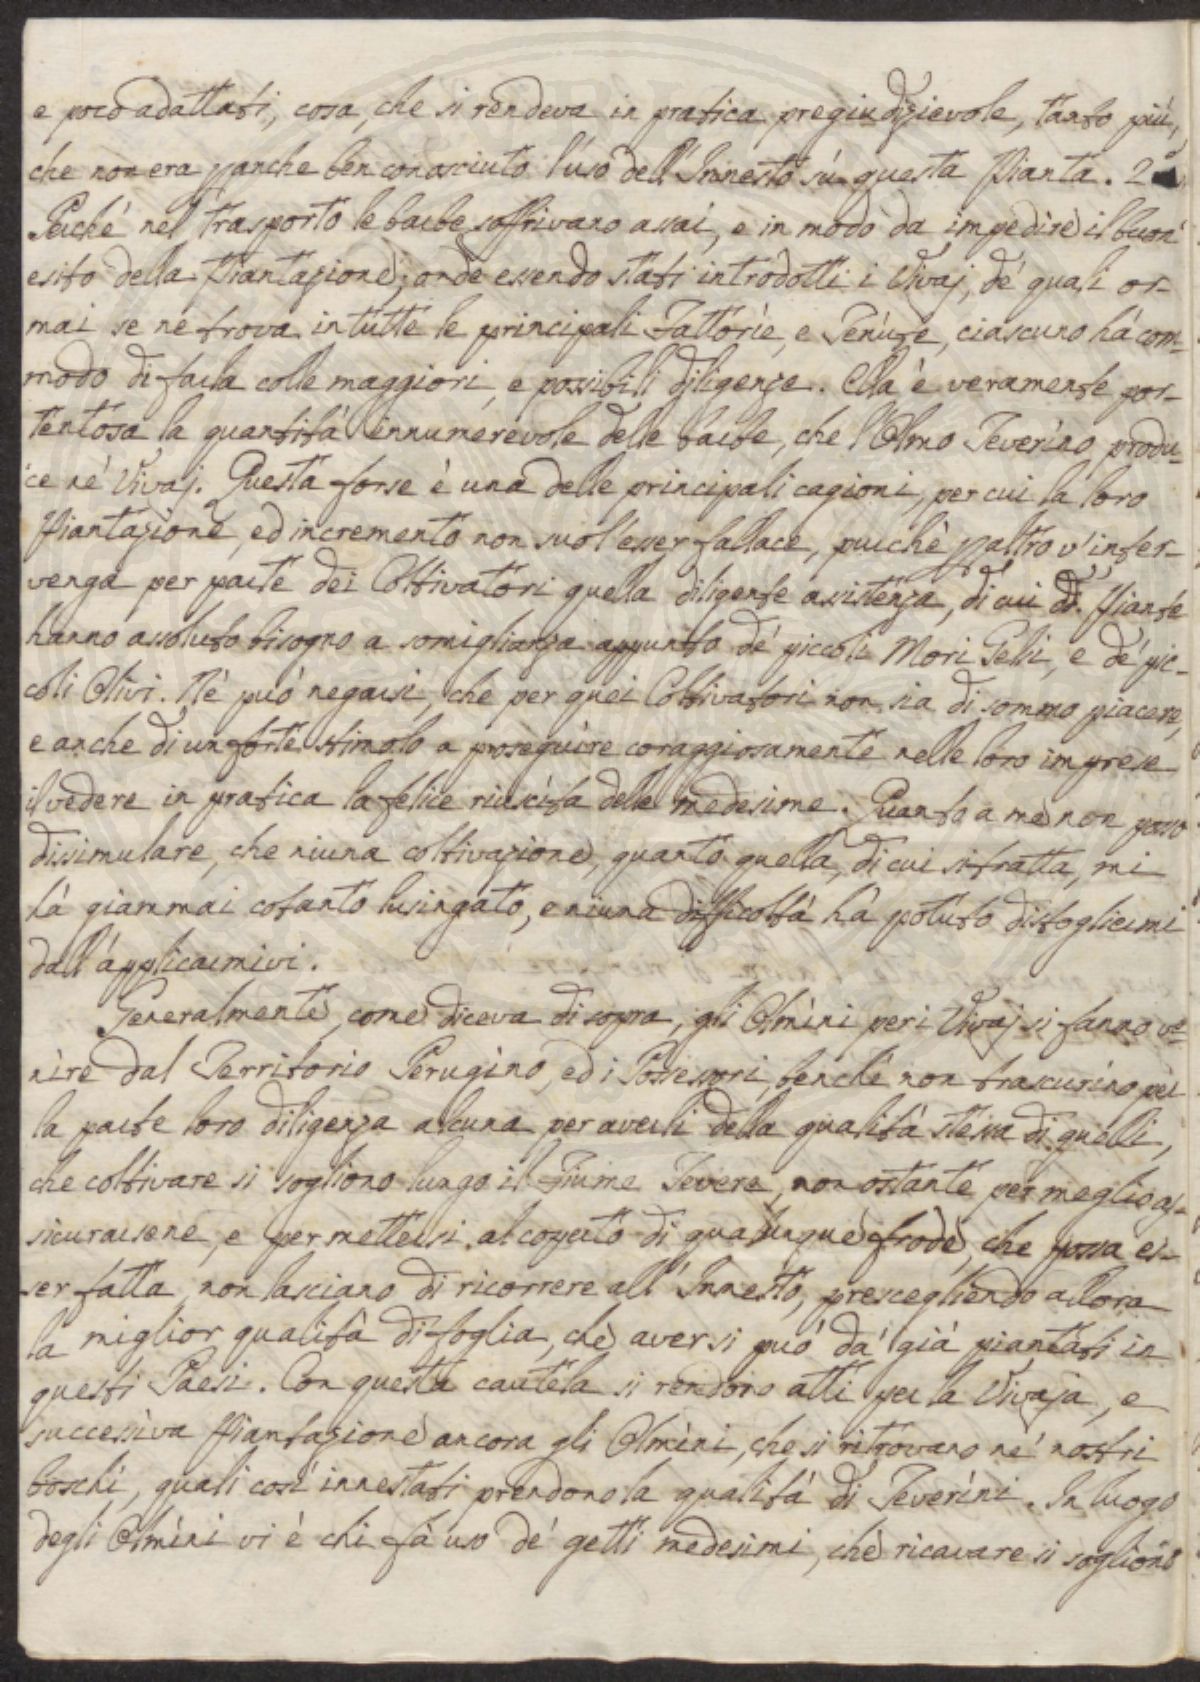 e poco adattati, cosa, che si rendeva in pratica pregiudizievole, tanto più,
che non era p anche ben conosciuto l'uso dell'Innesto sù questa Pianta. 2°
Perché nel trasporto le barbe soffrivano assai, e in modo da impedire il buon
esito della Piantazione; onde essendo stati introdotti i Vivaj, de' quali or-
mai se ne trova in tutte le principali Fattorie, e Tenute, ciascuno hà com-
modo di farla colle maggiori, e possibili diligenze. Ella è veramente por-
tentosa la quantità innumerevole delle barbe, che l'Olmo Teverino produ-
ce ne' Vivaj. Questa forse è una delle principali cagioni, per cui la loro
Piantazione, ed incremento non suol esser fallace, purchè p altro v'inter-
venga per parte dei Coltivatori quella diligente assistenza, di cui dd. Piante
hanno assoluto bisogno a somiglianza appunto de' piccoli Mori Gelsi, e de' pic-
coli Olivi. Nè può negarsi, che per quei Coltivatori non sia di sommo piacere,
e anche di un forte stimolo a proseguire coraggiosamente nelle loro imprese
il vedere in pratica la felice riuscita delle medesime. Quanto a me non posso
dissimulare, che niuna coltivazione, quanto quella, di cui si tratta, mi
hà giammai cotanto lusingato, e niuna difficoltà hà potuto distoglierмi
dall'applicarmivi.
Generalmente, come diceva di sopra, gli Olmini per i Vivaj si fanno ve-
nire dal Territorio Perugino, ed i Possessori, benchè non trascurino per
la parte loro diligenza alcuna per averli della qualità stessa di quelli,
che coltivare si sogliono lungo il Fiume Tevere, non ostante per meglio as-
sicurarsene, e per mettersi al coperto di qualunque frode, che possa es-
ser fatta, non lasciano di ricorrere all'Innesto, prescegliendo allora
la miglior qualità di foglia, che aver si può da' già piantati in
questi Paesi. Con questa cautela si rendono atti per la Vivaja, e
successiva Piantazione ancora gli Olmini, che si ritrovano ne' nostri
boschi, quali così innestati prendono la qualità di Teverini. In luogo
degli Olmini vi è chi fà uso de' getti medesimi, che ricavare si sogliono